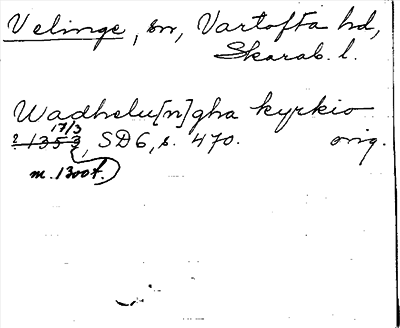 Velinge, sn, Vartofta hd,
Skarab. l.
Wadhelu[n]gha kyrkio
17/3
? 1353, SD6, s. 470. orig.
m. 1300t.